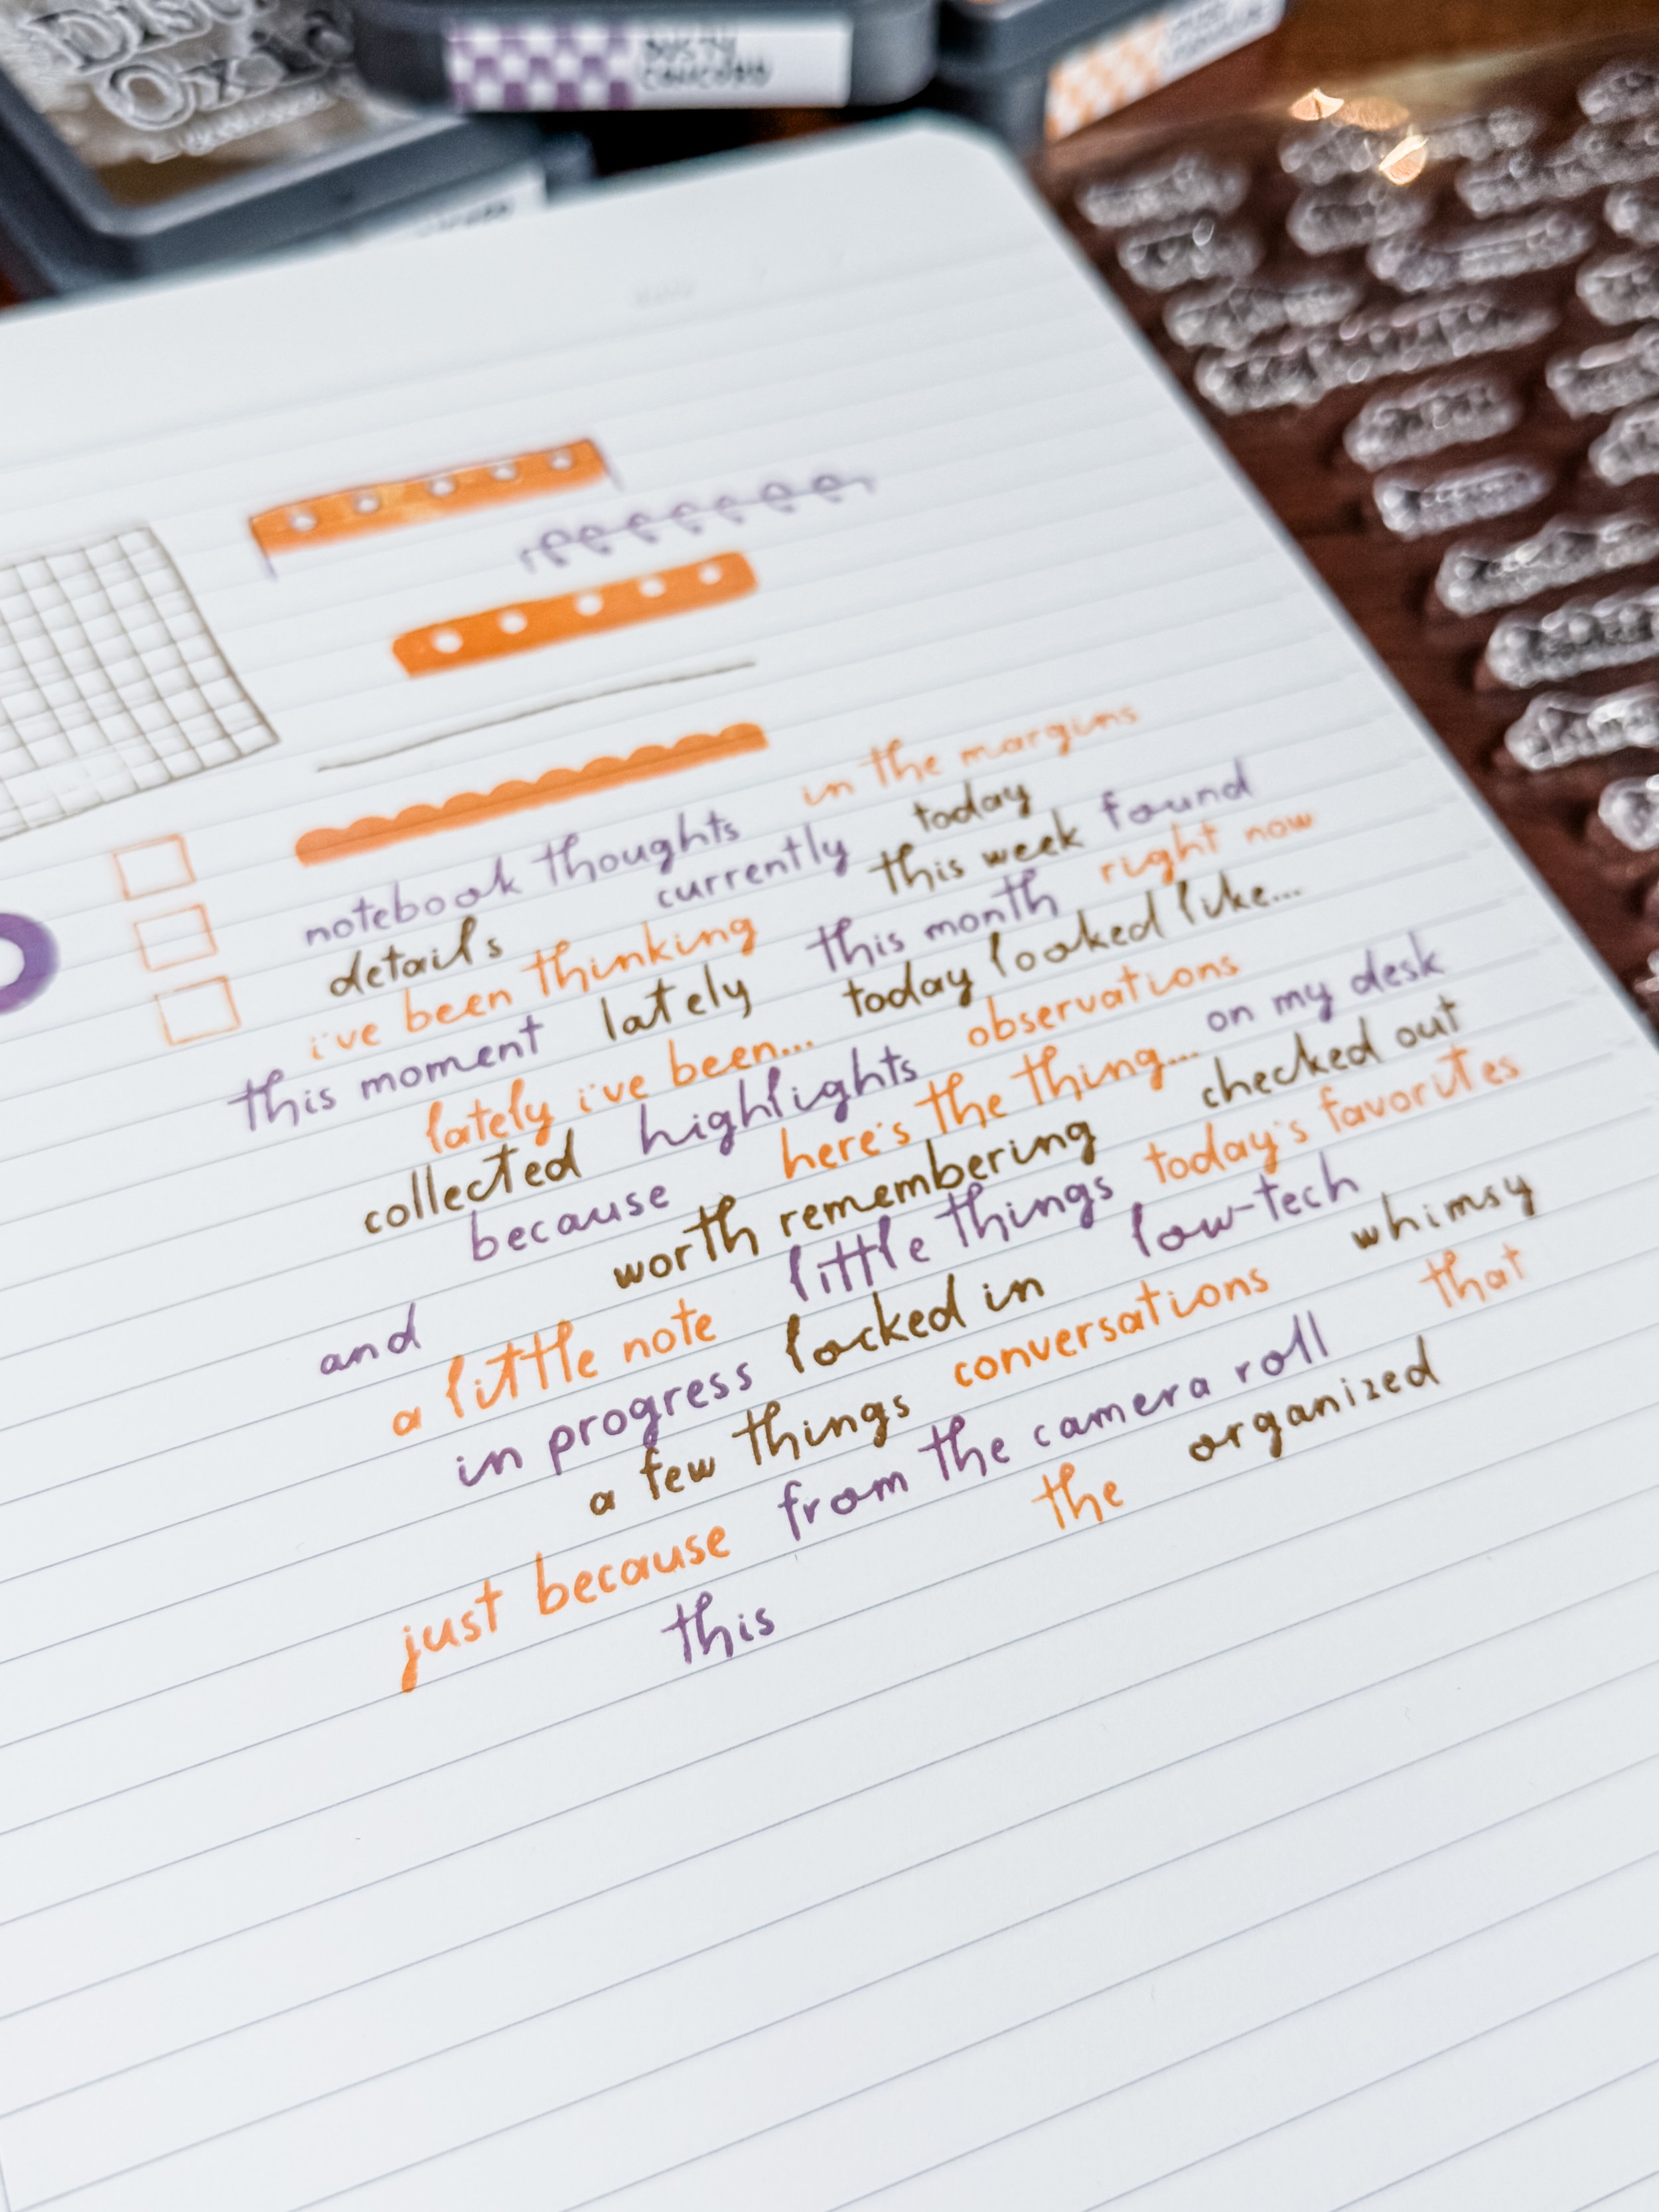 Distress
Oxide
DUSTY
CONCORD
in the margins
notebook thoughts
today
currently
found
details
this week
right now
i've been thinking
this month
this moment
lately
today looked like...
lately i've been...
observations
on my desk
collected
highlights
here's the thing...
checked out
because
worth remembering
today's favorites
and
little things
low-tech
whimsy
a little note
locked in
conversations
that
in progress
a few things
from the camera roll
organized
just because
the
this